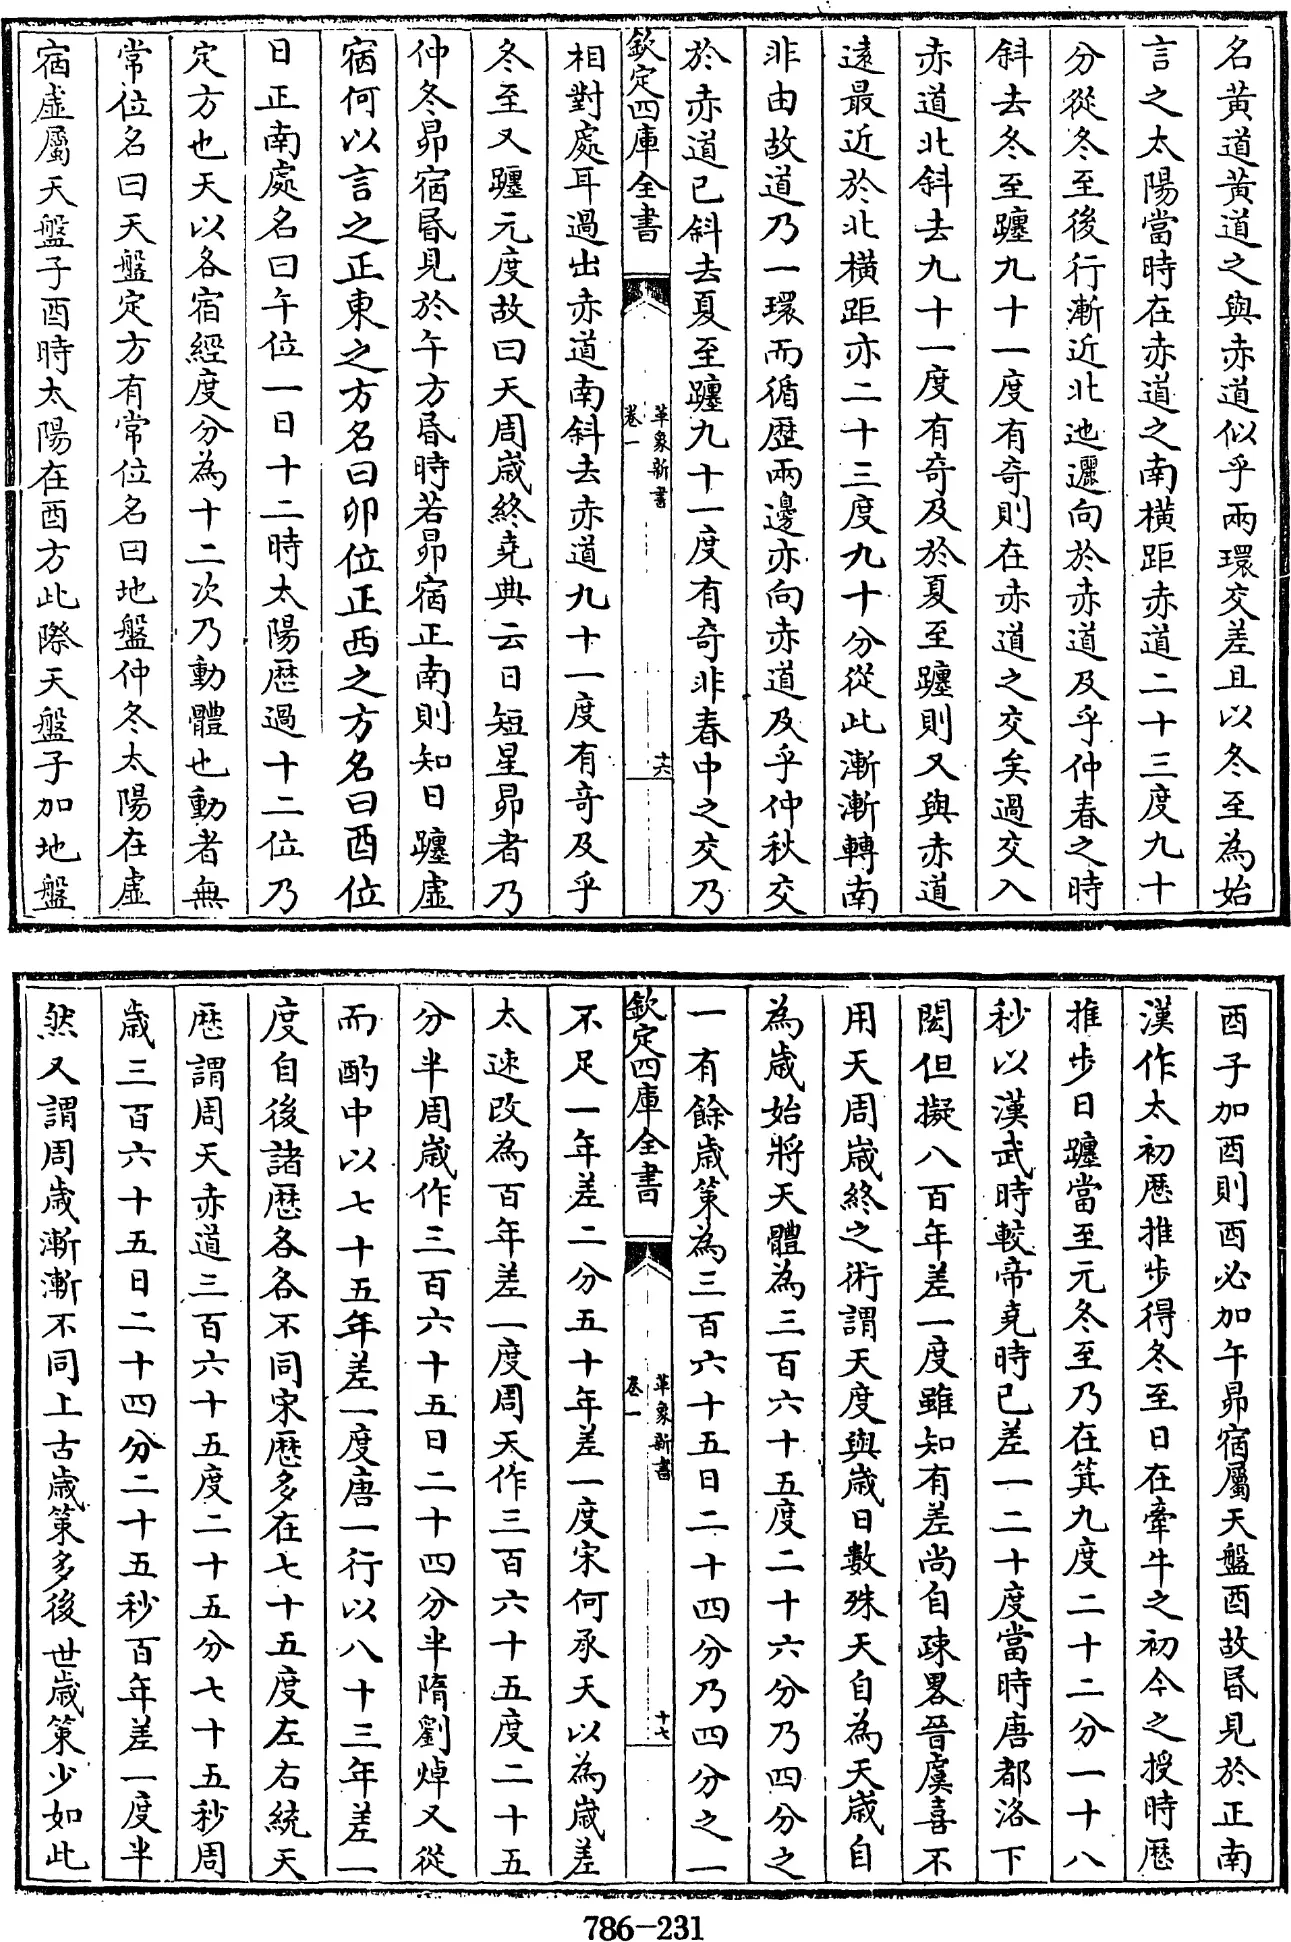 名黄道黄道之與赤道似乎兩環交差且以冬至為始
言之太陽當時在赤道之南橫距赤道二十三度九十
分從冬至後行漸近北迆邐向於赤道及乎仲春之時
斜去冬至躔九十一度有奇則在赤道之交矣過交入
赤道北斜去九十一度有奇及於夏至躔則又與赤道
遠最近於北橫距亦二十三度九十分從此漸漸轉南
非由故道乃一環而循歴兩邊亦向赤道及乎仲秋交
於赤道已斜去夏至躔九十一度有奇非春中之交乃
欽定四庫全書
革象新書
卷一
十六
相對處耳過出赤道南斜去赤道九十一度有奇及乎
冬至又躔元度故曰天周歳終堯典云日短星昴者乃
仲冬昴宿昏見於午方昏時若昴宿正南則知日躔虚
宿何以言之正東之方名曰卯位正西之方名曰酉位
日正南處名曰午位一日十二時太陽歴過十二位乃
定方也天以各宿經度分為十二次乃動體也動者無
常位名曰天盤定方有常位名曰地盤仲冬太陽在虚
宿虚屬天盤子酉時太陽在酉方此際天盤子加地盤
酉子加酉則酉必加午昴宿屬天盤酉故昏見於正南
漢作太初厯推步得冬至日在牽牛之初今之授時厯
推步日躔當至元冬至乃在箕九度二十二分一十八
秒以漢武時較帝堯時已差一二十度當時唐都洛下
閎但擬八百年差一度雖知有差尚自疎畧晉虞喜不
用天周歳終之術謂天度與歳日數殊天自為天歳自
為歳始將天體為三百六十五度二十六分乃四分之
一有餘歳策為三百六十五日二十四分乃四分之一
欽定四庫全書
革象新書
卷一
十七
不足一年差二分五十年差一度宋何承天以為歳差
太速改為百年差一度周天作三百六十五度二十五
分半周歳作三百六十五日二十四分半隋劉焯又從
而酌中以七十五年差一度唐一行以八十三年差一
度自後諸厯各各不同宋厯多在七十五度左右統天
厯謂周天赤道三百六十五度二十五分七十五秒周
歳三百六十五日二十四分二十五秒百年差一度半
然又謂周歳漸漸不同上古歳策多後世歳策少如此
786-231